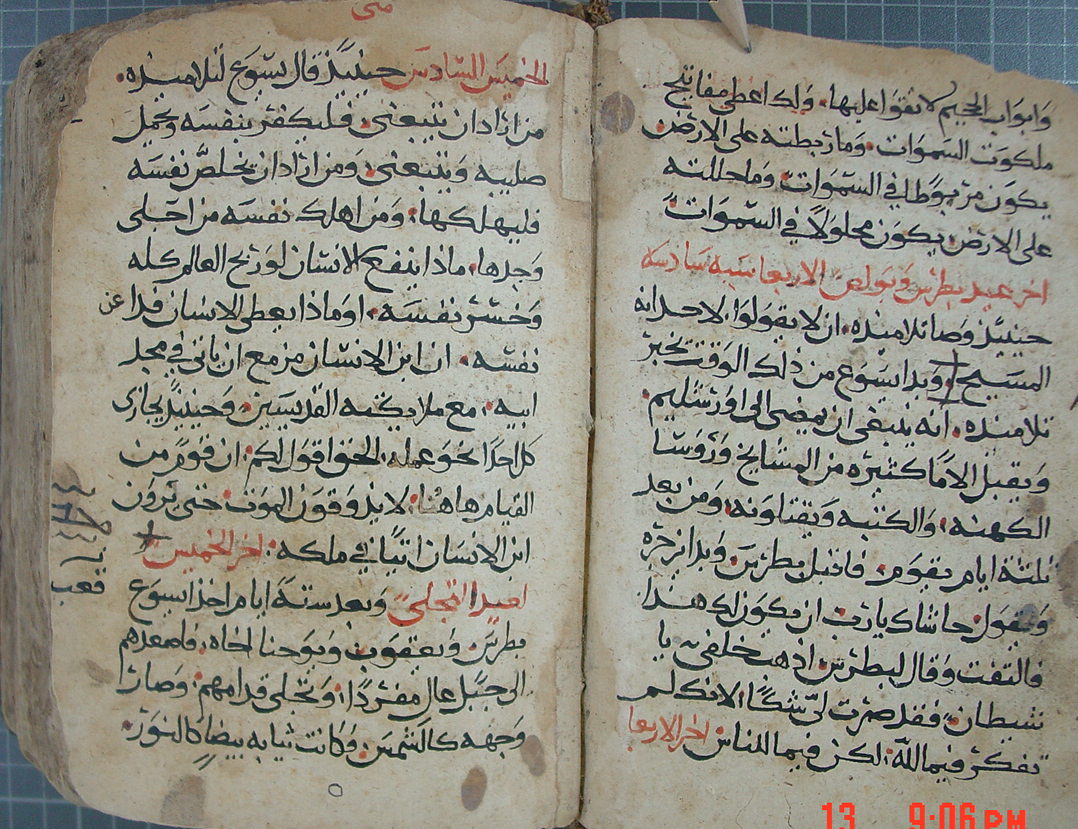 وابواب الجحيم لا يقوا عليها. ولك اعطي مفاتيح
ملكوت السموات. وما ربطته على الارض
يكون مربوطا في السموات وما حللته
على الارض يكون محلولاً في السموات
اخر عيد بطرس وبولص الاربعا سبه سادسه
حينيذ وصا تلاميذه. ان لا يقولوا لاحد انه
المسيح. وبدا يسوع من ذلك الوقت يخبر
تلاميذه. انه ينبغي ان يمضي الى اورشليم.
ويقبل الاماً كثيره من المشايخ ورؤسا
الكهنه. والكتبه ويقتلونه. ومن بعد
ثلثة ايام يقوم. فاقبل بطرس. وبدا يزجره
ويقول حاشاك يا رب ان يكون لك هذا
فالتفت وقال لبطرس اذهب خلفي يا
شيطان. فقد صرت لي شكًا. لانك لم
تفكر فيما لله. لكن فيما للناس اخر الاربعا
متى
الخميس السادس حينيذٍ قال يسوع لتلاميذه.
من اراد ان يتبعني. فليكفر بنفسه ويحمل
صليبه ويتبعني. ومن اراد ان يخلص نفسه
فليهلكها. ومن اهلك نفسه من اجلي
وجدها. ماذا ينفع الانسان لو ربح العالم كله
وخسر نفسه. اوماذا يعطي الانسان فدا عن
نفسه. ان ابن الانسان مزمع ان ياتي في مجد
ابيه. مع ملايكته القديسين. وحينيذٍ يجازي
كل احدًا نحو عمله. الحق اقول لكم. ان قومً من
القيام هاهنا. لا يذوقون الموت حتى يرون
ابن الانسان اتيًا في ملكه. اخر الخميس
لعيد التجلي وبعد ستة ايام اخذ يسوع
بطرس. ويعقوب ويوحنا اخاه. فاصعدهم
الى جبل عال مفردًا. وتجلى قدامهم. وصار
وجهه كالشمس. وكانت ثيابه بيضا كالنور.
13 9:06 PM